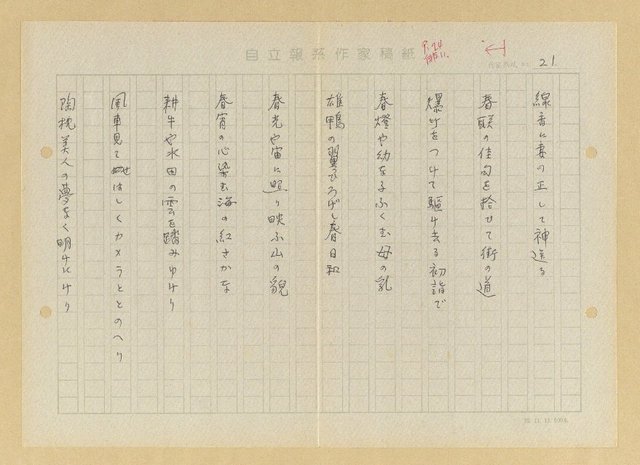 自立報系作家稿紙
21
線香に妻の正して神迎る
春联の佳句を拾せて街の道
爆竹をつけて駆け去る初詣で
春燈や幼な子ふくむ母の乳
雄鴨の翼ひろげし春日和
春光や宙に照り映ふ山の貌
春宵の心染む海の紅さかな
耕牛や水田の雲を踏みゆけり
風車見てせはしくカメラととのへり
陶枕美人の夢なく明けにけり